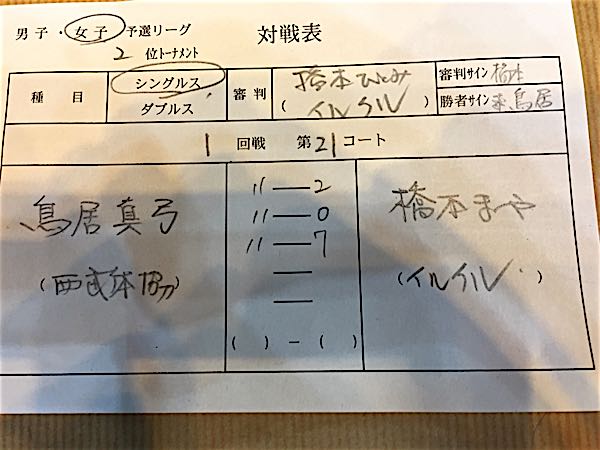 男子・女子 予選リーグ 対戦表
2 位トーナメント
種目 シングルス ダブルス 審判 橋本ひとみ (イルケル) 審判サイン 橋本
勝者サイン 鳥居
1 回戦 第21コート
鳥居真弓 11―2 橋本まや
11―0
11―7
(西武体協) ― (イルケル)
―
( ) − ( )